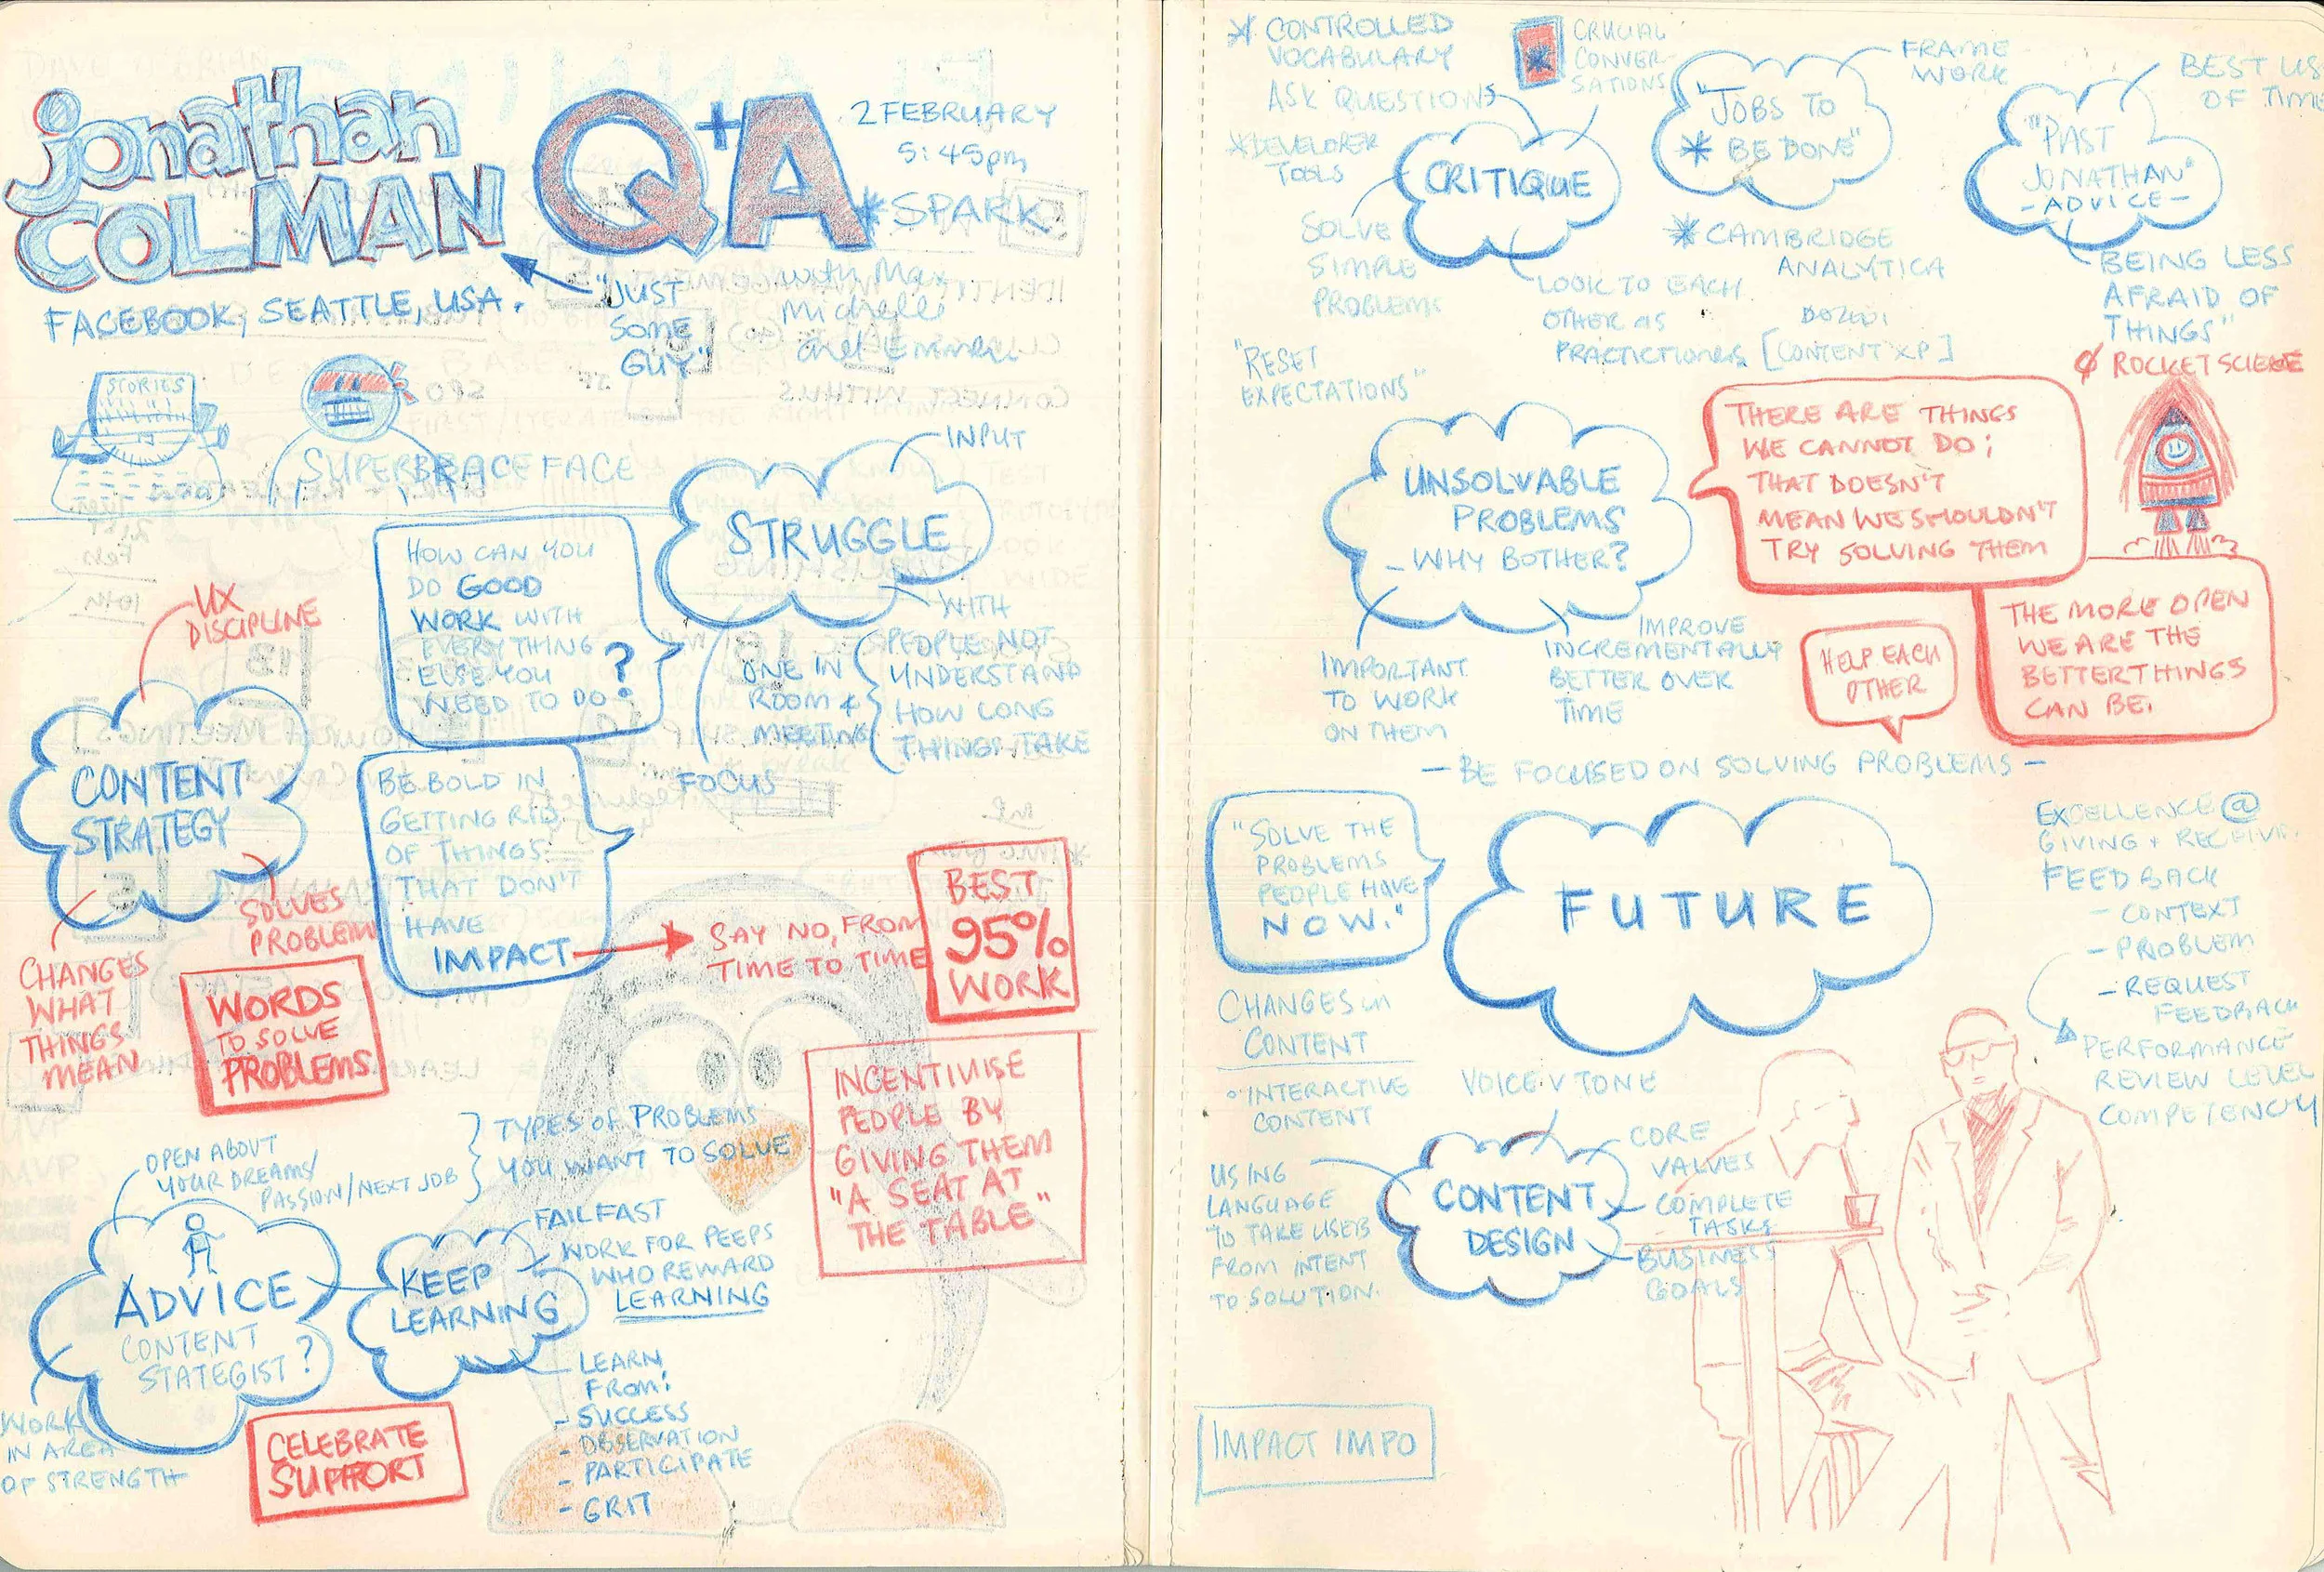 jonathan
COLMAN
Q+A
2 FEBRUARY
5:45pm
*SPARK
with Max
Michelle
and
FACEBOOK, SEATTLE, USA.
"JUST
SOME
GUY"
STORIES
SUPERBRACE FACE
INPUT
STRUGGLE
HOW CAN YOU
DO GOOD
WORK WITH
EVERYTHING
ELSE YOU
NEED TO DO?
WITH
PEOPLE NOT
UNDERSTAND
HOW LONG
THINGS TAKE
ONE IN
ROOM &
MEETING
FOCUS
UX
DISCIPLINE
CONTENT
STRATEGY
SOLVES
PROBLEM
CHANGES
WHAT
THINGS
MEAN
WORDS
TO SOLVE
PROBLEMS
BE BOLD IN
GETTING RID
OF THINGS
THAT DON'T
HAVE
IMPACT
SAY NO, FROM
TIME TO TIME
BEST
95%
WORK
INCENTIVISE
PEOPLE BY
GIVING THEM
"A SEAT AT
THE TABLE"
OPEN ABOUT
YOUR DREAMS/
PASSION/NEXT JOB
TYPES OF PROBLEMS
YOU WANT TO SOLVE
ADVICE
CONTENT
STATEGIST?
WORK
IN AREA
OF STRENGTH
KEEP
LEARNING
FAIL FAST
WORK FOR PEEPS
WHO REWARD
LEARNING
LEARN
FROM:
- SUCCESS
- OBSERVATION
- PARTICIPATE
- GRIT
CELEBRATE
SUPPORT
* CONTROLLED
VOCABULARY
ASK QUESTIONS
*DEVELOPER
TOOLS
CRUCIAL
CONVER-
SATIONS
CRITIQUE
SOLVE
SIMPLE
PROBLEMS
LOOK TO EACH
OTHER AS
PRACTICTIONERS
FRAME
WORK
"JOBS TO
* BE DONE"
*CAMBRIDGE
ANALYTICA
[CONTENT XP]
BEST US
OF TIME
"PAST
JONATHAN"
-ADVICE-
BEING LESS
AFRAID OF
THINGS"
"RESET
EXPECTATIONS"
UNSOLVABLE
PROBLEMS
-WHY BOTHER?
IMPORTANT
TO WORK
ON THEM
IMPROVE
INCREMENTALLY
BETTER OVER
TIME
THERE ARE THINGS
WE CANNOT DO;
THAT DOESN'T
MEAN WE SHOULDN'T
TRY SOLVING THEM
ROCKET SCIENCE
THE MORE OPEN
WE ARE THE
BETTER THINGS
CAN BE.
HELP EACH
OTHER
- BE FOCUSED ON SOLVING PROBLEMS -
"SOLVE THE
PROBLEMS
PEOPLE HAVE
NOW."
FUTURE
EXCELLENCE @
GIVING + RECEIVIN
FEEDBACK
- CONTEXT
- PROBLEM
- REQUEST
FEEDBACK
PERFORMANCE
REVIEW LEVEL
COMPETENCY
CHANGES in
CONTENT
INTERACTIVE
CONTENT
VOICE V TONE
CONTENT
DESIGN
CORE
VALVES
COMPLETE
TASKS
BUSINESS
GOALS
USING
LANGUAGE
TO TAKE USER
FROM INTENT
TO SOLUTION.
IMPACT IMPO